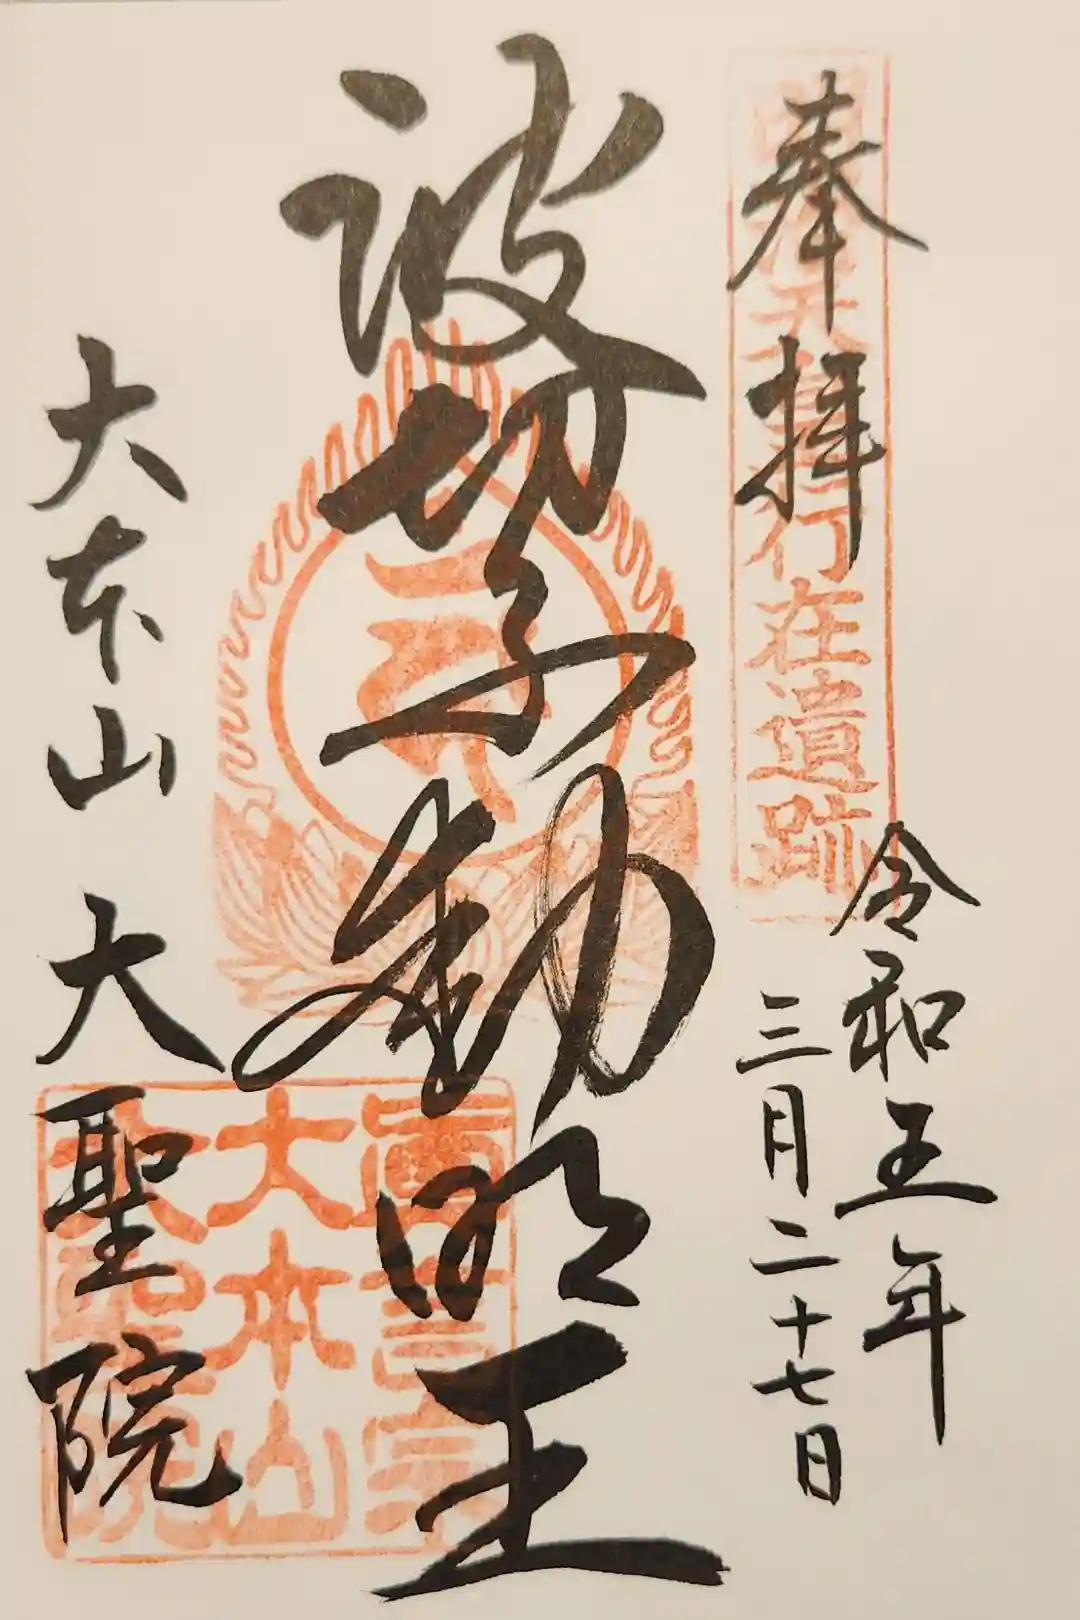 奉拝
明治天皇行在遺跡
令和五年
三月二十七日
波切不動明王
大本山 大聖院
真言宗
大本山
大聖院